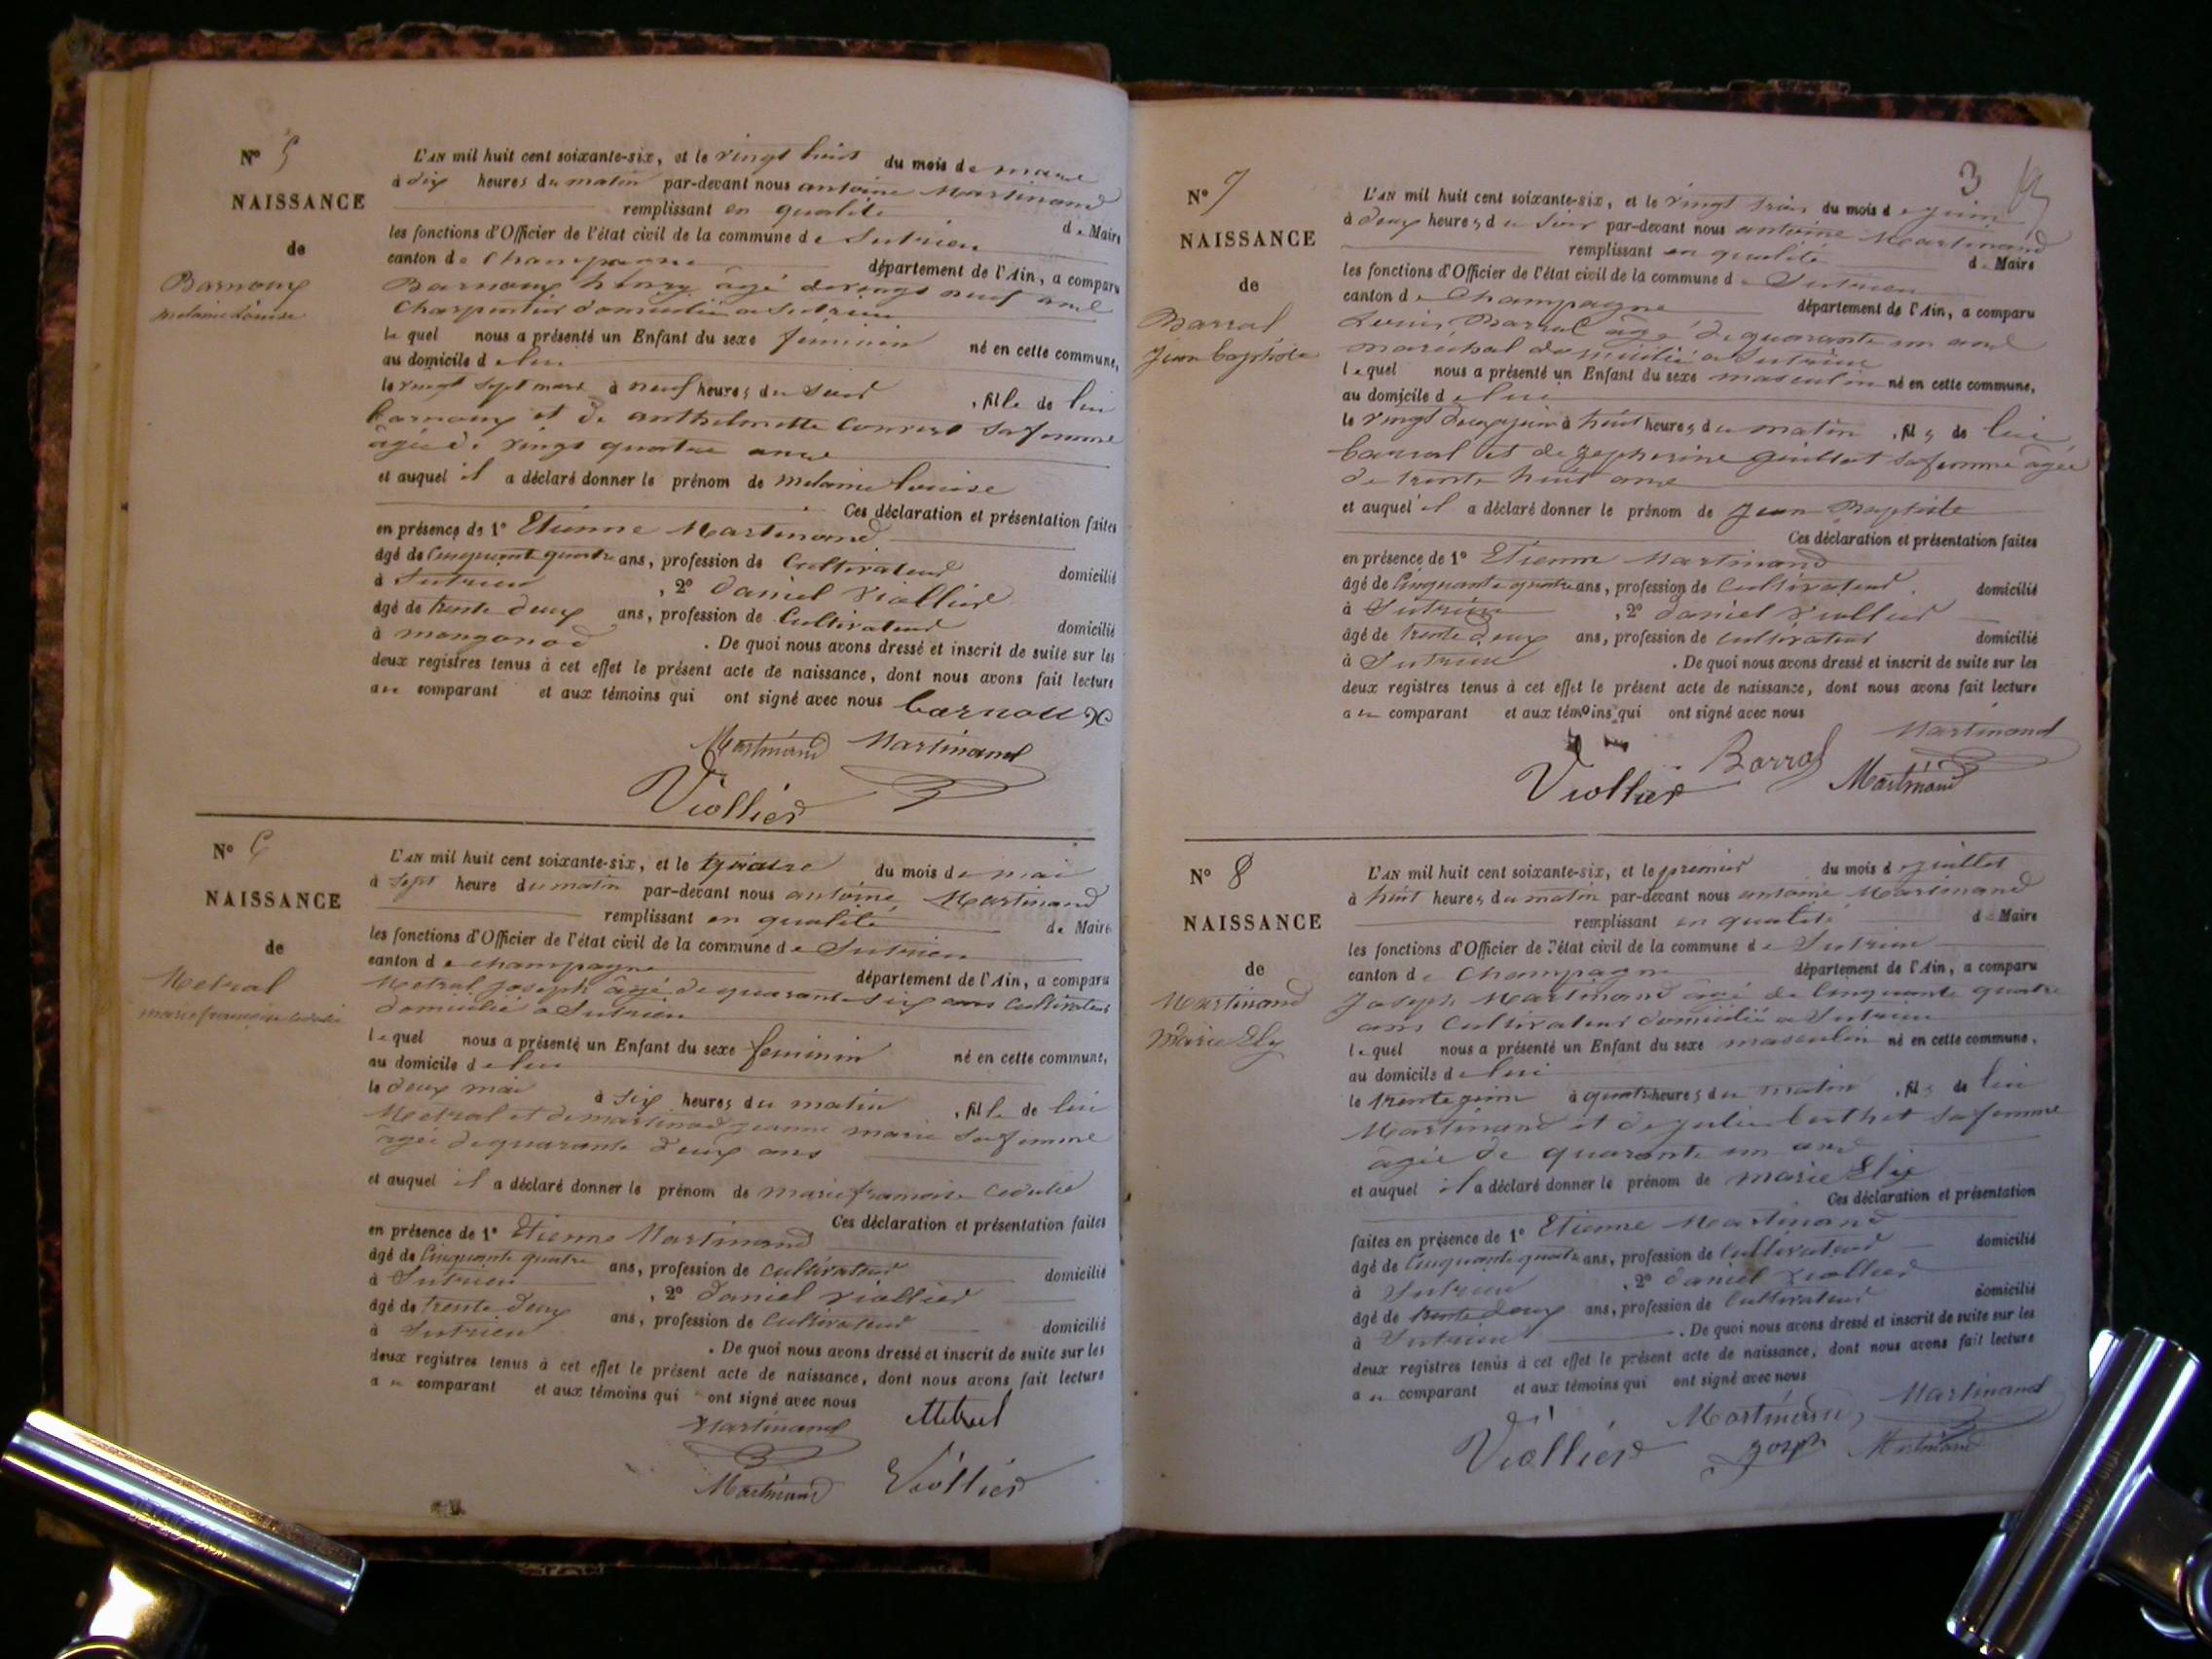 N° 5
NAISSANCE
de
Barnoux
melanie Louise
L'AN mil huit cent soixante-six, et le vingt huit du mois de mars
à dix heures du matin par-devant nous antoine Martinand
remplissant en qualité de Maire
les fonctions d'Officier de l'état civil de la commune de Sutrieu
canton de Champagne département de l'Ain, a comparu
Barnoux henry âgé de vingt neuf ans
Charpentier domicilié a Sutrieu
le quel nous a présenté un Enfant du sexe féminin né en cette commune,
au domicile de lui
le vingt sept mars à neuf heures du soir , fille de lui
barnoux et de anthelmette Convert sa femme
âgée de vingt quatre ans
et auquel il a déclaré donner le prénom de melanie Louise
Ces déclaration et présentation faites
en présence de 1° Etienne Martinand
âgé de Cinquante quatre ans, profession de Cultivateur domicilié
à Sutrieu , 2° daniel Viollier
âgé de trente deux ans, profession de Cultivateur domicilié
à mongonod . De quoi nous avons dressé et inscrit de suite sur les
deux registres tenus à cet effet le présent acte de naissance, dont nous avons fait lecture
au comparant et aux témoins qui ont signé avec nous barnoux
Martinand Martinand
Viollier
N° 6
NAISSANCE
de
Metral
marie françoise
L'AN mil huit cent soixante-six, et le quatre du mois de mai
à sept heure du matin par-devant nous antoine Martinand
remplissant en qualité de Maire
les fonctions d'Officier de l'état civil de la commune de Sutrieu
canton de champagne département de l'Ain, a comparu
Metral joseph âgé de quarante six ans Cultivateur
domicilié a Sutrieu
le quel nous a présenté un Enfant du sexe feminin né en cette commune,
au domicile de lui
le deux mai à six heures du matin , fille de lui
Metral et de martinod jeanne marie sa femme
âgée de quarante deux ans
et auquel il a déclaré donner le prénom de marie francoise
Ces déclaration et présentation faites
en présence de 1° Etienne Martinand
âgé de Cinquante quatre ans, profession de Cultivateur domicilié
à Sutrieu , 2° daniel Viollier
âgé de trente deux ans, profession de Cultivateur domicilié
à Sutrieu . De quoi nous avons dressé et inscrit de suite sur les
deux registres tenus à cet effet le présent acte de naissance, dont nous avons fait lecture
au comparant et aux témoins qui ont signé avec nous
Martinand Metral
Martinand Viollier
3
N° 7
NAISSANCE
de
Barral
Jean baptiste
L'AN mil huit cent soixante-six, et le vingt trois du mois de juin
à deux heures du soir par-devant nous antoine Martinand
remplissant en qualité de Maire
les fonctions d'Officier de l'état civil de la commune de Sutrieu
canton de Champagne département de l'Ain, a comparu
Louis Barral âgé de quarante un ans
maréchal domicilié a Sutrieu
lequel nous a présenté un Enfant du sexe masculin né en cette commune,
au domicile de lui
le vingt deux juin à huit heures du matin , fils de lui
barral et de zepherine guillot sa femme âgée
de trente huit ans
et auquel il a déclaré donner le prénom de Jean Baptiste
Ces déclaration et présentation faites
en présence de 1° Etienne Martinand
âgé de Cinquante quatre ans, profession de Cultivateur domicilié
à Sutrieu , 2° daniel Viollier
âgé de trente deux ans, profession de Cultivateur domicilié
à Sutrieu . De quoi nous avons dressé et inscrit de suite sur les
deux registres tenus à cet effet le présent acte de naissance, dont nous avons fait lecture
au comparant et aux témoins qui ont signé avec nous
Martinand
Viollier Barral Martinand
N° 8
NAISSANCE
de
Martinand
Marie Ely
L'AN mil huit cent soixante-six, et le premier du mois de juillet
à huit heures du matin par-devant nous antoine Martinand
remplissant en qualité de Maire
les fonctions d'Officier de l'état civil de la commune de Sutrieu
canton de Champagne département de l'Ain, a comparu
Joseph Martinand âgé de Cinquante quatre
ans Cultivateur domicilié a Sutrieu
lequel nous a présenté un Enfant du sexe masculin né en cette commune,
au domicile de lui
le trente juin à quatre heures du matin , fils de lui
Martinand et de julie berthet sa femme
âgée de quarante un ans
et auquel il a déclaré donner le prénom de marie
Ces déclaration et présentation
faites en présence de 1° Etienne Martinand
âgé de Cinquante quatre ans, profession de Cultivateur domicilié
à Sutrieu , 2° daniel Viollier
âgé de trente deux ans, profession de Cultivateur domicilié
à Sutrieu . De quoi nous avons dressé et inscrit de suite sur les
deux registres tenus à cet effet le présent acte de naissance, dont nous avons fait lecture
au comparant et aux témoins qui ont signé avec nous
Martinand Martinand
Viollier joseph Martinand